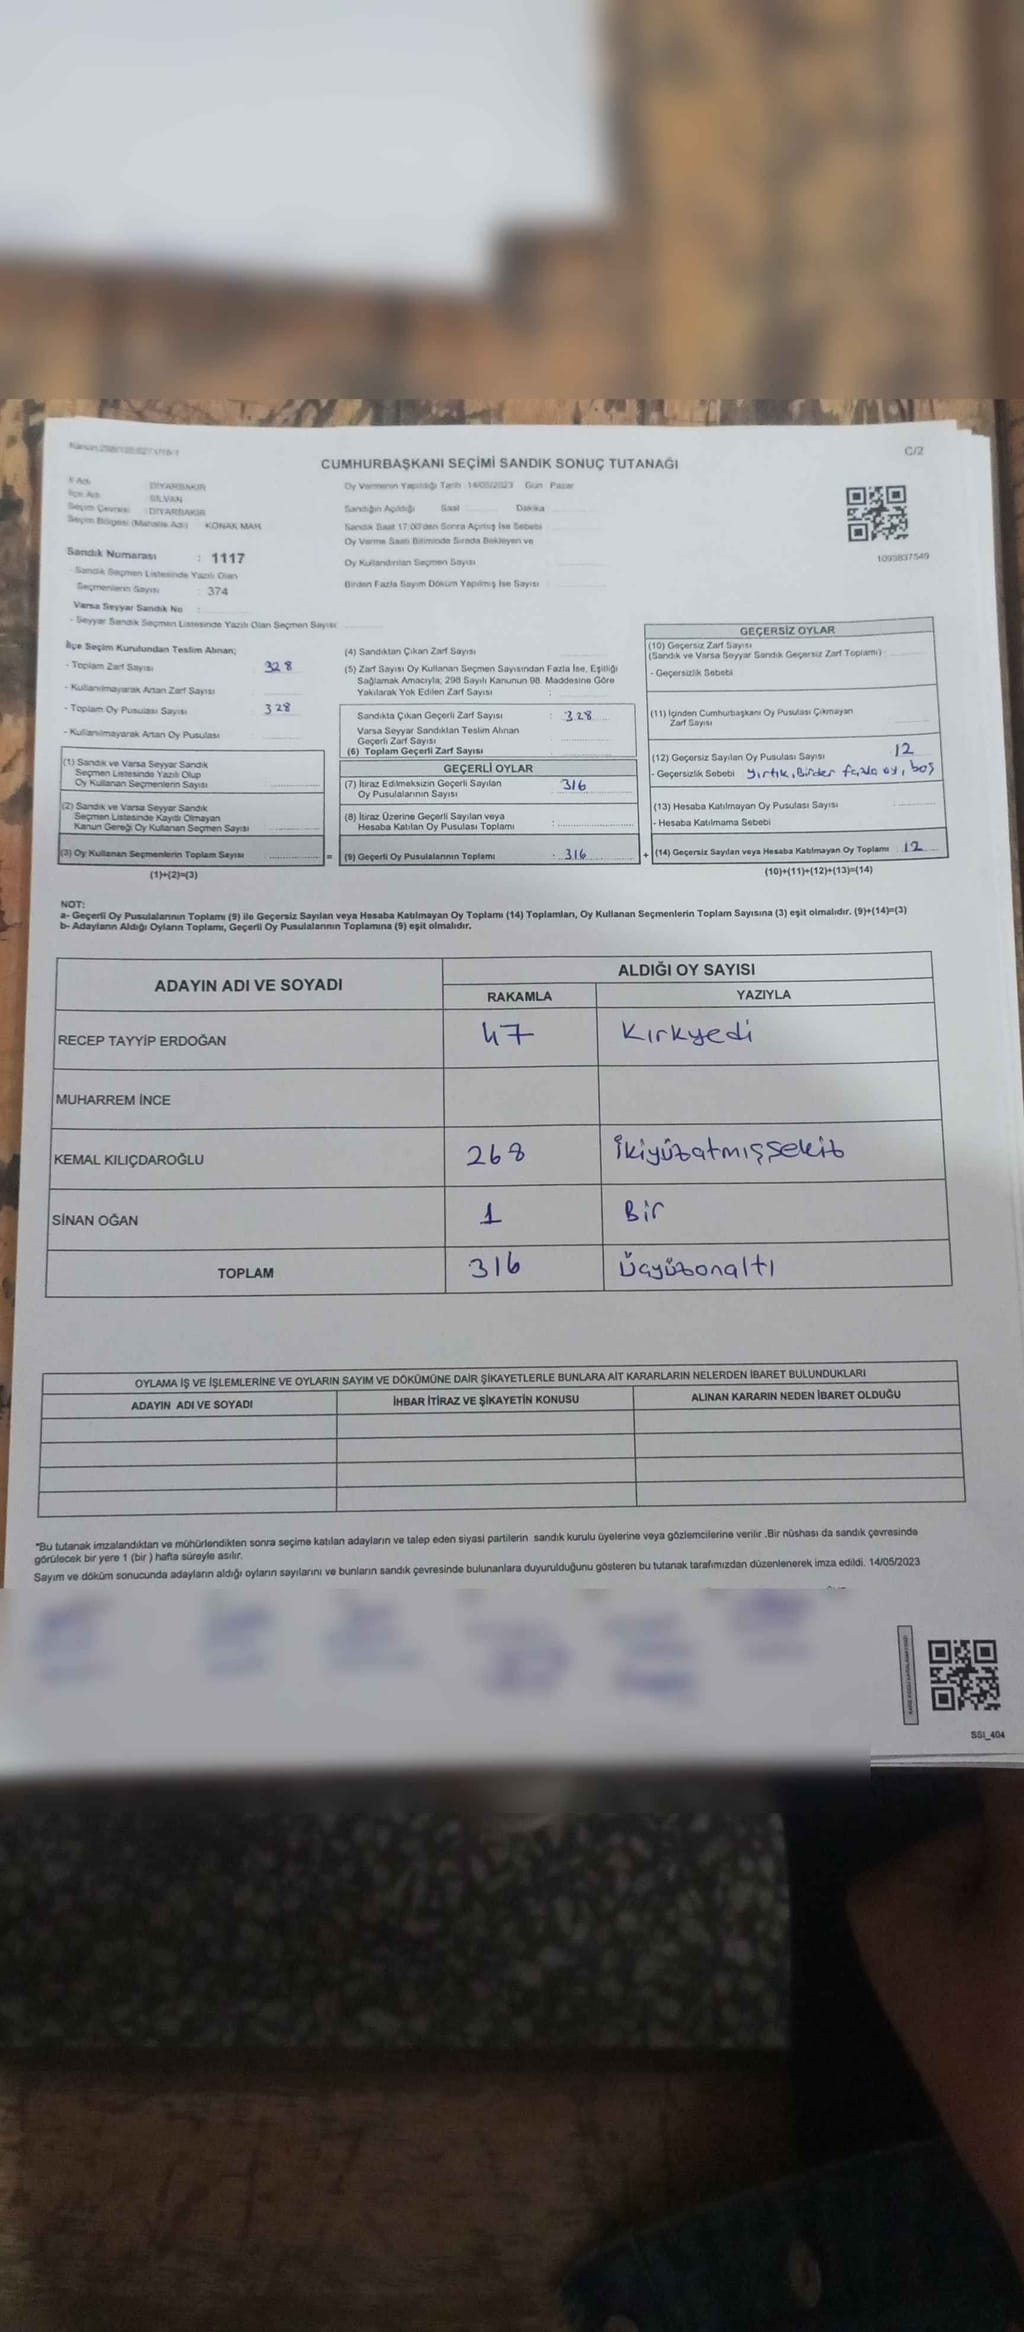 C/2
CUMHURBAŞKANI SEÇİMİ SANDIK SONUÇ TUTANAĞI
İl Adı : DİYARBAKIR
İlçe Adı : SİLVAN
Seçim Çevresi : DİYARBAKIR
Seçim Bölgesi (Mahalle Adı) : KONAK MAH.
Sandık Numarası : 1117
- Sandık Seçmen Listesinde Yazılı Olan
Seçmenlerin Sayısı : 374
Varsa Seyyar Sandık No :
- Seyyar Sandık Seçmen Listesinde Yazılı Olan Seçmen Sayısı:
Oy Vermenin Yapıldığı Tarih : 14/05/2023 Gün : Pazar
Sandığın Açıldığı Saat Dakika
Sandık Saat 17:00'den Sonra Açılmış İse Sebebi
Oy Verme Saati Bitiminde Sırada Bekleyen ve
Oy Kullandırılan Seçmen Sayısı
Birden Fazla Sayım Döküm Yapılmış İse Sayısı :
1093837549
İlçe Seçim Kurulundan Teslim Alınan;
- Toplam Zarf Sayısı 328
- Kullanılmayarak Artan Zarf Sayısı
- Toplam Oy Pusulası Sayısı 328
- Kullanılmayarak Artan Oy Pusulası
(1) Sandık ve Varsa Seyyar Sandık
Seçmen Listesinde Yazılı Olup
Oy Kullanan Seçmenlerin Sayısı
(2) Sandık ve Varsa Seyyar Sandık
Seçmen Listesinde Kayıtlı Olmayan
Kanun Gereği Oy Kullanan Seçmen Sayısı
(3) Oy Kullanan Seçmenlerin Toplam Sayısı =
(1)+(2)=(3)
(4) Sandıktan Çıkan Zarf Sayısı
(5) Zarf Sayısı Oy Kullanan Seçmen Sayısından Fazla İse, Eşitliği
Sağlamak Amacıyla; 298 Sayılı Kanunun 98. Maddesine Göre
Yakılarak Yok Edilen Zarf Sayısı :
Sandıkta Çıkan Geçerli Zarf Sayısı : 328
Varsa Seyyar Sandıktan Teslim Alınan
Geçerli Zarf Sayısı
(6) Toplam Geçerli Zarf Sayısı
GEÇERLİ OYLAR
(7) İtiraz Edilmeksizin Geçerli Sayılan
Oy Pusulalarının Sayısı 316
(8) İtiraz Üzerine Geçerli Sayılan veya
Hesaba Katılan Oy Pusulası Toplamı :
(9) Geçerli Oy Pusulalarının Toplamı : 316 +
GEÇERSİZ OYLAR
(10) Geçersiz Zarf Sayısı
(Sandık ve Varsa Seyyar Sandık Geçersiz Zarf Toplamı) :
- Geçersizlik Sebebi
(11) İçinden Cumhurbaşkanı Oy Pusulası Çıkmayan
Zarf Sayısı
(12) Geçersiz Sayılan Oy Pusulası Sayısı 12
- Geçersizlik Sebebi Yırtık, Birden fazla oy, boş
(13) Hesaba Katılmayan Oy Pusulası Sayısı
- Hesaba Katılmama Sebebi
(14) Geçersiz Sayılan veya Hesaba Katılmayan Oy Toplamı : 12
(10)+(11)+(12)+(13)=(14)
NOT:
a- Geçerli Oy Pusulalarının Toplamı (9) ile Geçersiz Sayılan veya Hesaba Katılmayan Oy Toplamı (14) Toplamları, Oy Kullanan Seçmenlerin Toplam Sayısına (3) eşit olmalıdır. (9)+(14)=(3)
b- Adayların Aldığı Oyların Toplamı, Geçerli Oy Pusulalarının Toplamına (9) eşit olmalıdır.
ADAYIN ADI VE SOYADI ALDIĞI OY SAYISI
RAKAMLA YAZIYLA
RECEP TAYYİP ERDOĞAN 47 Kırkyedi
MUHARREM İNCE
KEMAL KILIÇDAROĞLU 268 İkiyüzatmışsekiz
SİNAN OĞAN 1 Bir
TOPLAM 316 Üçyüzonaltı
OYLAMA İŞ VE İŞLEMLERİNE VE OYLARIN SAYIM VE DÖKÜMÜNE DAİR ŞİKAYETLERLE BUNLARA AİT KARARLARIN NELERDEN İBARET BULUNDUKLARI
ADAYIN ADI VE SOYADI İHBAR İTİRAZ VE ŞİKAYETİN KONUSU ALINAN KARARIN NEDEN İBARET OLDUĞU
"Bu tutanak imzalandıktan ve mühürlendikten sonra seçime katılan adayların ve talep eden siyasi partilerin sandık kurulu üyelerine veya gözlemcilerine verilir .Bir nüshası da sandık çevresinde
görülecek bir yere 1 (bir ) hafta süreyle asılır.
Sayım ve döküm sonucunda adayların aldığı oyların sayılarını ve bunların sandık çevresinde bulunanlara duyurulduğunu gösteren bu tutanak tarafımızdan düzenlenerek imza edildi. 14/05/2023
SSI_404